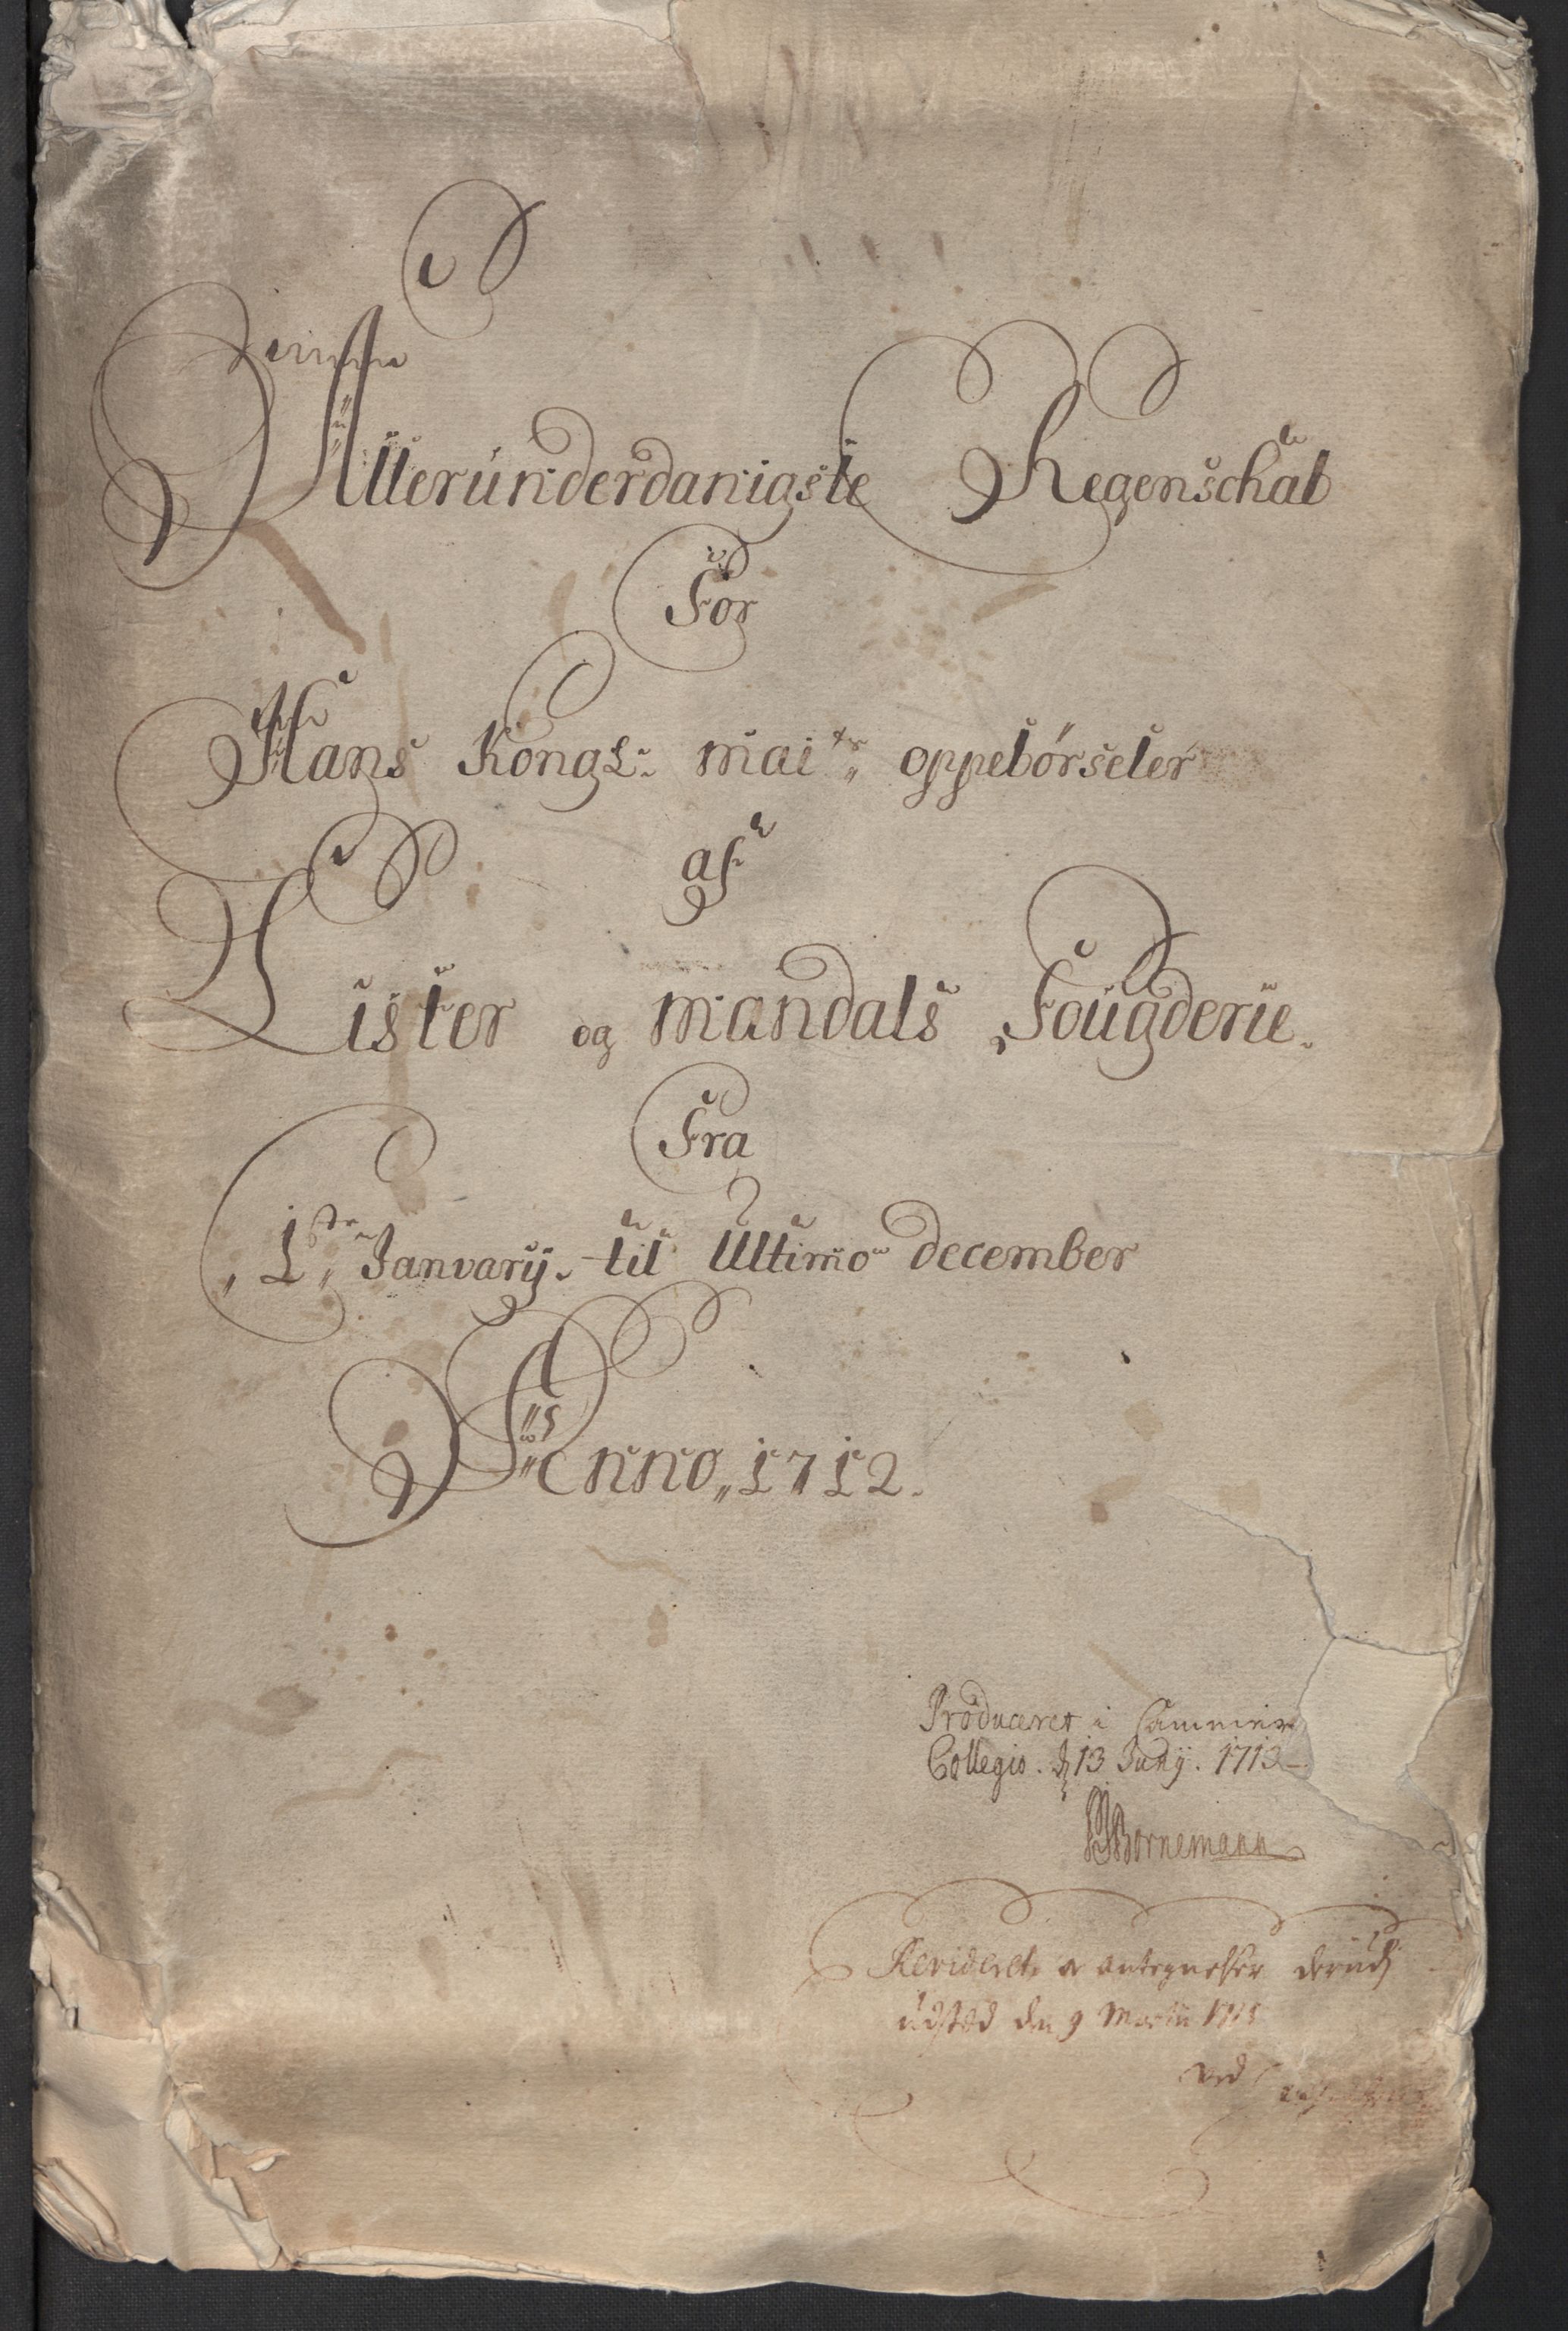 Allerunderdanigste Regenschab
For
Hans Kongl: maits oppebørseler
af
Lister og mandals Fougderie.
Fra
1ste Janvarij. til Ultimo december
Anno 1712.
Produceret i Cammer
Collegio. d 13 Junij. 1713
Bornemann
Revideret og antegnelser derudj
udstæd den 9 Martii
ved